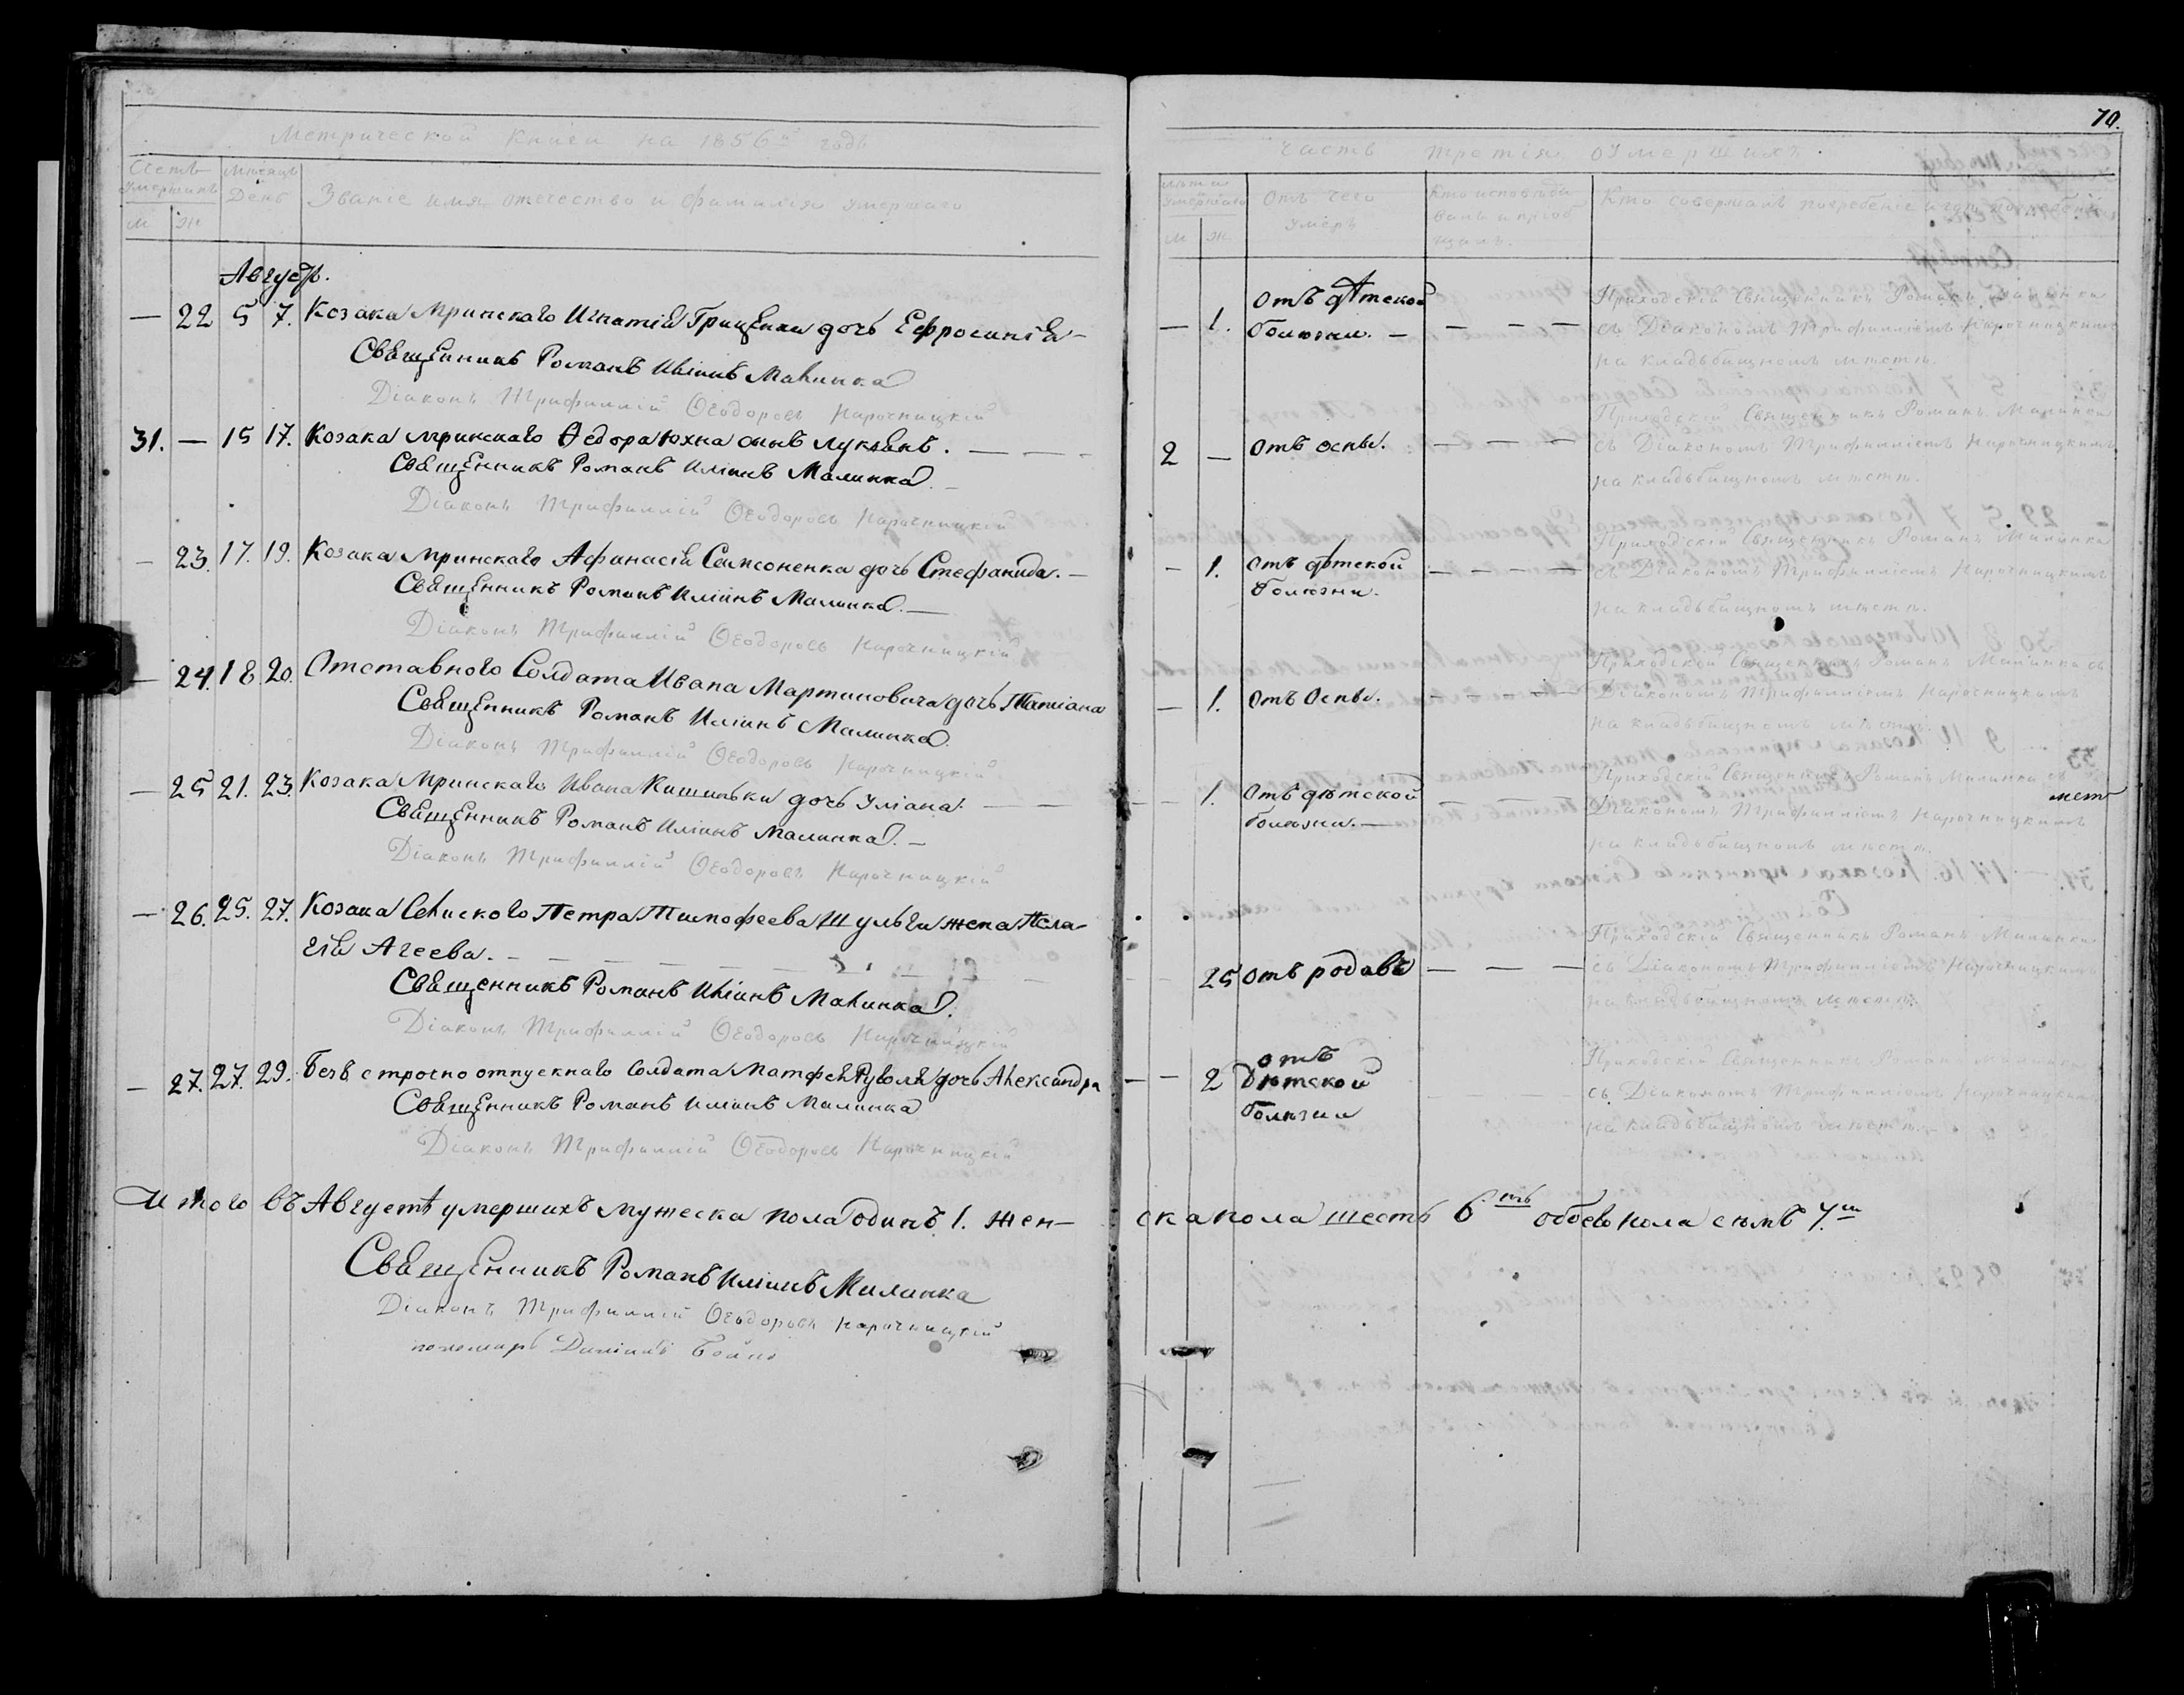 Метрической Книги на 1856й годъ
Щетъ умершихъ
Мѣсяцъ День
Званіе имя отечество и фамилія умершаго
м ж
Августъ.
— 22 5 7. Козака мринскаго Игнатія Грищенки дочь Ефросинія —
Священникъ Романъ Иліинъ Малинка
Діаконъ Трифиллій Ѳеодоровъ Нарочницкій
31. — 15 17. Козака мринскаго Ѳедора Юхна сынъ Лукіанъ. — — -
Священникъ Романъ Иліинъ Малинка. —
Діаконъ Трифиллій Ѳеодоровъ Нарочницкій
— 23. 17. 19. Козака мринскаго Афанасія Самсоненка дочь Стефанида. —
Священникъ Романъ Иліинъ Малинка. —
Діаконъ Трифиллій Ѳеодоровъ Нарочницкій
— 24. 18. 20. Отставного Солдата Ивана Мартиновича дочь Татіана
Священникъ Романъ Иліинъ Малинка.
Діаконъ Трифиллій Ѳеодоровъ Нарочницкій
— 25 21. 23. Козака Мринскаго Ивана Кишиньки дочь Уліана. — —
Священникъ Романъ Иліинъ Малинка. —
Діаконъ Трифиллій Ѳеодоровъ Нарочницкій
— 26. 25. 27. Козака Селиского Петра Тимофеева Шульги жена Пела-
гія Агеева. — — — — — — —
Священникъ Романъ Иліинъ Малинка.
Діаконъ Трифиллій Ѳеодоровъ Нарочницкій
— 27. 27. 29. Безъ строчно отпускнаго Солдата Матфея Рубля дочь Александра
Священникъ Романъ Иліинъ Малинка
Діаконъ Трифиллій Ѳеодоровъ Нарочницкій
Итого въ Августѣ умершихъ мужеска пола одинъ 1. жен-
Священникъ Романъ Иліинъ Малинка
Діаконъ Трифиллій Ѳеодоровъ Нарочницкій
пономарь Даміанъ Бойко
70.
Часть третія о умершихъ.
Лѣта умершаго
м ж
Отъ чего умеръ
Кто исповѣды
валъ и пріоб
щалъ.
Кто совершалъ погребеніе и гдѣ погребены
— 1. Отъ дѣтской
болѣзни. — — — —
Приходскій Священникъ Романъ Малинка
съ Діакономъ Трифилліемъ Нарочницкимъ
на кладьбищномъ мѣстѣ.
2 — Отъ оспы. — — —
Приходскій Священникъ Романъ Малинка
съ Діакономъ Трифилліемъ Нарочницкимъ
на кладьбищномъ мѣстѣ.
— 1. Отъ дѣтской
болѣзни. — — — —
Приходскій Священникъ Романъ Малинка
съ Діакономъ Трифилліемъ Нарочницкимъ
на кладьбищномъ мѣстѣ.
— 1. Отъ Оспы. — — — —
Приходской Священникъ Романъ Малинка съ
Діакономъ Трифилліемъ Нарочницкимъ
на кладьбищномъ мѣстѣ.
— 1. Отъ дѣтской
болѣзни. — — — —
Приходскій Священникъ Романъ Малинка съ
Діакономъ Трифилліемъ Нарочницкимъ
на кладьбищномъ мѣстѣ.
25 Отъ родовъ — — —
Приходскій Священникъ Романъ Малинка
съ Діакономъ Трифилліемъ Нарочницкимъ
на кладьбищномъ мѣстѣ.
— 2 отъ
Дѣтской
болѣзни
Приходскій Священникъ Рома
съ Діакономъ Трифилліемъ Нарочницким
на кладьбищномъ мѣстѣ.
ска пола шесть 6ть обоего пола семъ 7.м